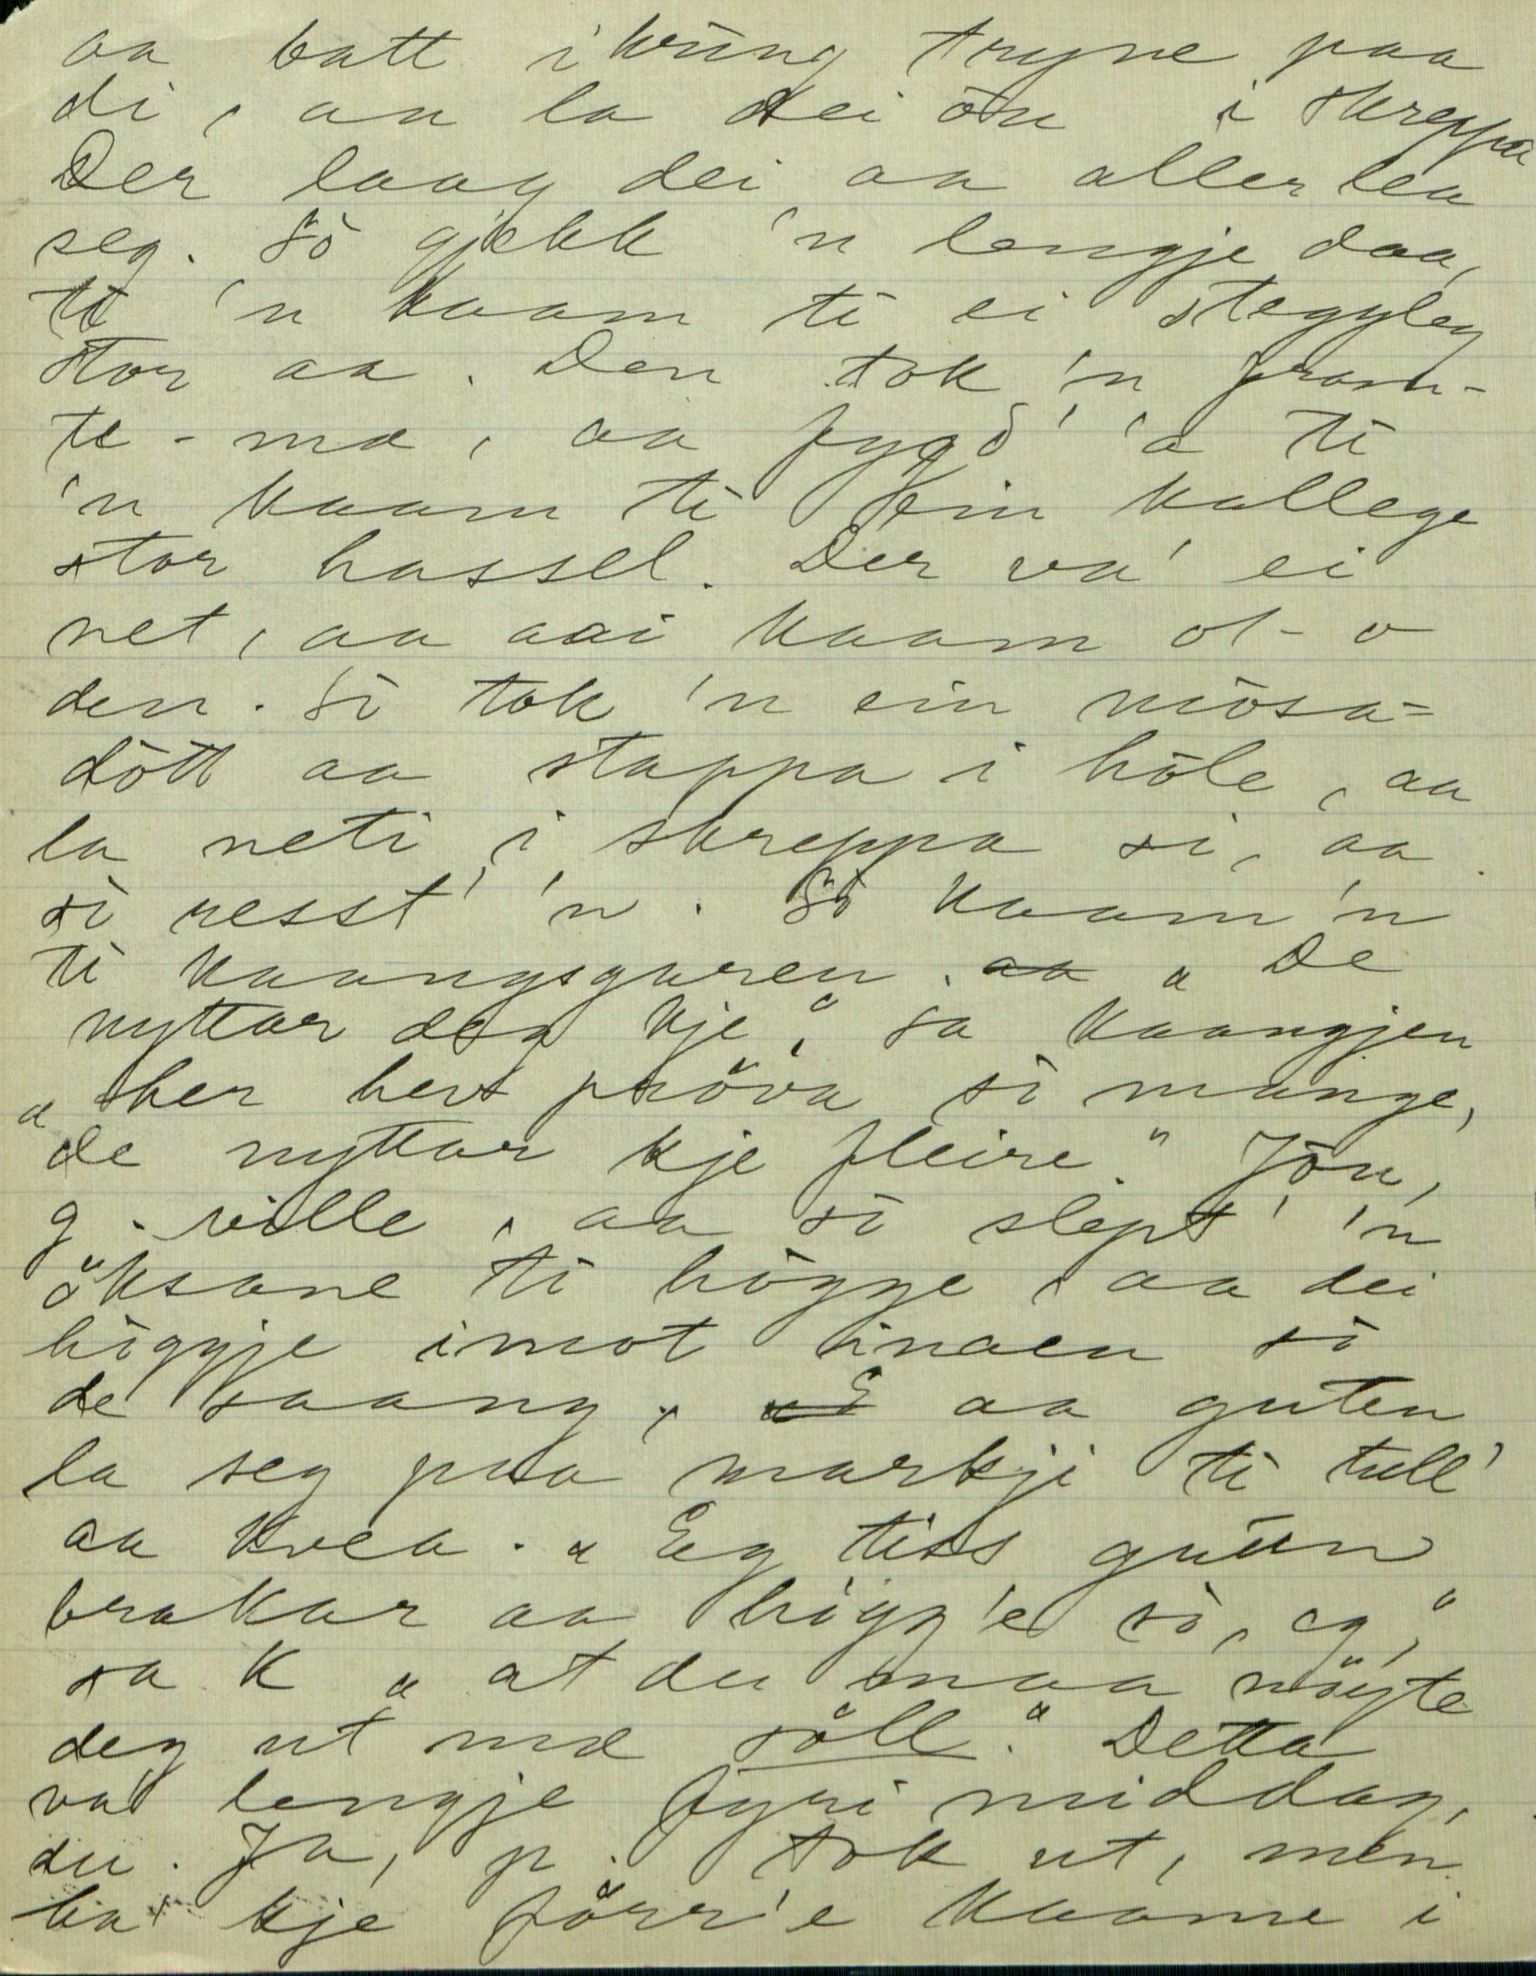 aa batt ikring tryne paa
di, aa la dei ōn i skreppa
Der laag dei aa aller lea
seg. Sò gjekk 'n lengje daa,
te 'n kaam ti ei steggyleg
stor aa. Den tok 'n fram-
te - mæ, aa fygd' 'a ti
'n kaam ti ein kallege
stor hassel. Der va' ei
net, aa aai kaam ol- o
den. Sò tok 'n ein mòsa=
dòtt aa stappa i hòle, aa
la neti i skreppa si, aa
sò resst' 'n. Sò kaam 'n
ti kaangsgaren. „De
nyttar deg kje," sa kaangjen
„her hev pröva sò mange,
de nyttar kje fleire." Jōn,
g. ville, aa sò slept' 'n
öksane ti hògge, aa dei
hòggje imot einaen sò
de saang, aa guten
la seg paa markji ti tull'
aa kvea. „Eg tiss guten
brakar aa hògg'e sò, eg,"
sa K „at du maa nöygte
deg ut mæ söll." Detta
va' lengje fyri middag,
du. Ja, p. tok ut, men
ha' kje förr'e kaame i